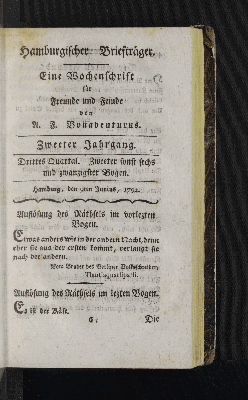 Hamburgischer Briefträger.
Eine Wochenschrift
für
Freunde und Feinde
von
A. F. Bonaventurus.
Zweeter Jahrgang.
Drittes Quartal. Zweeter sonst sechs
und zwanzigster Bogen.
Hamburg, den Junius, 1792.
Auflösung des Räthsels im vorlezten
Bogen.
Etwas anders wie in der andern Nacht, denn
eher sie aus der ersten kommt, verlangt sie
nach der andern.
Vom Bruder des Berliner
Auflösung des Räthsels im lezten Bogen.
Es ist der Käse.
Die